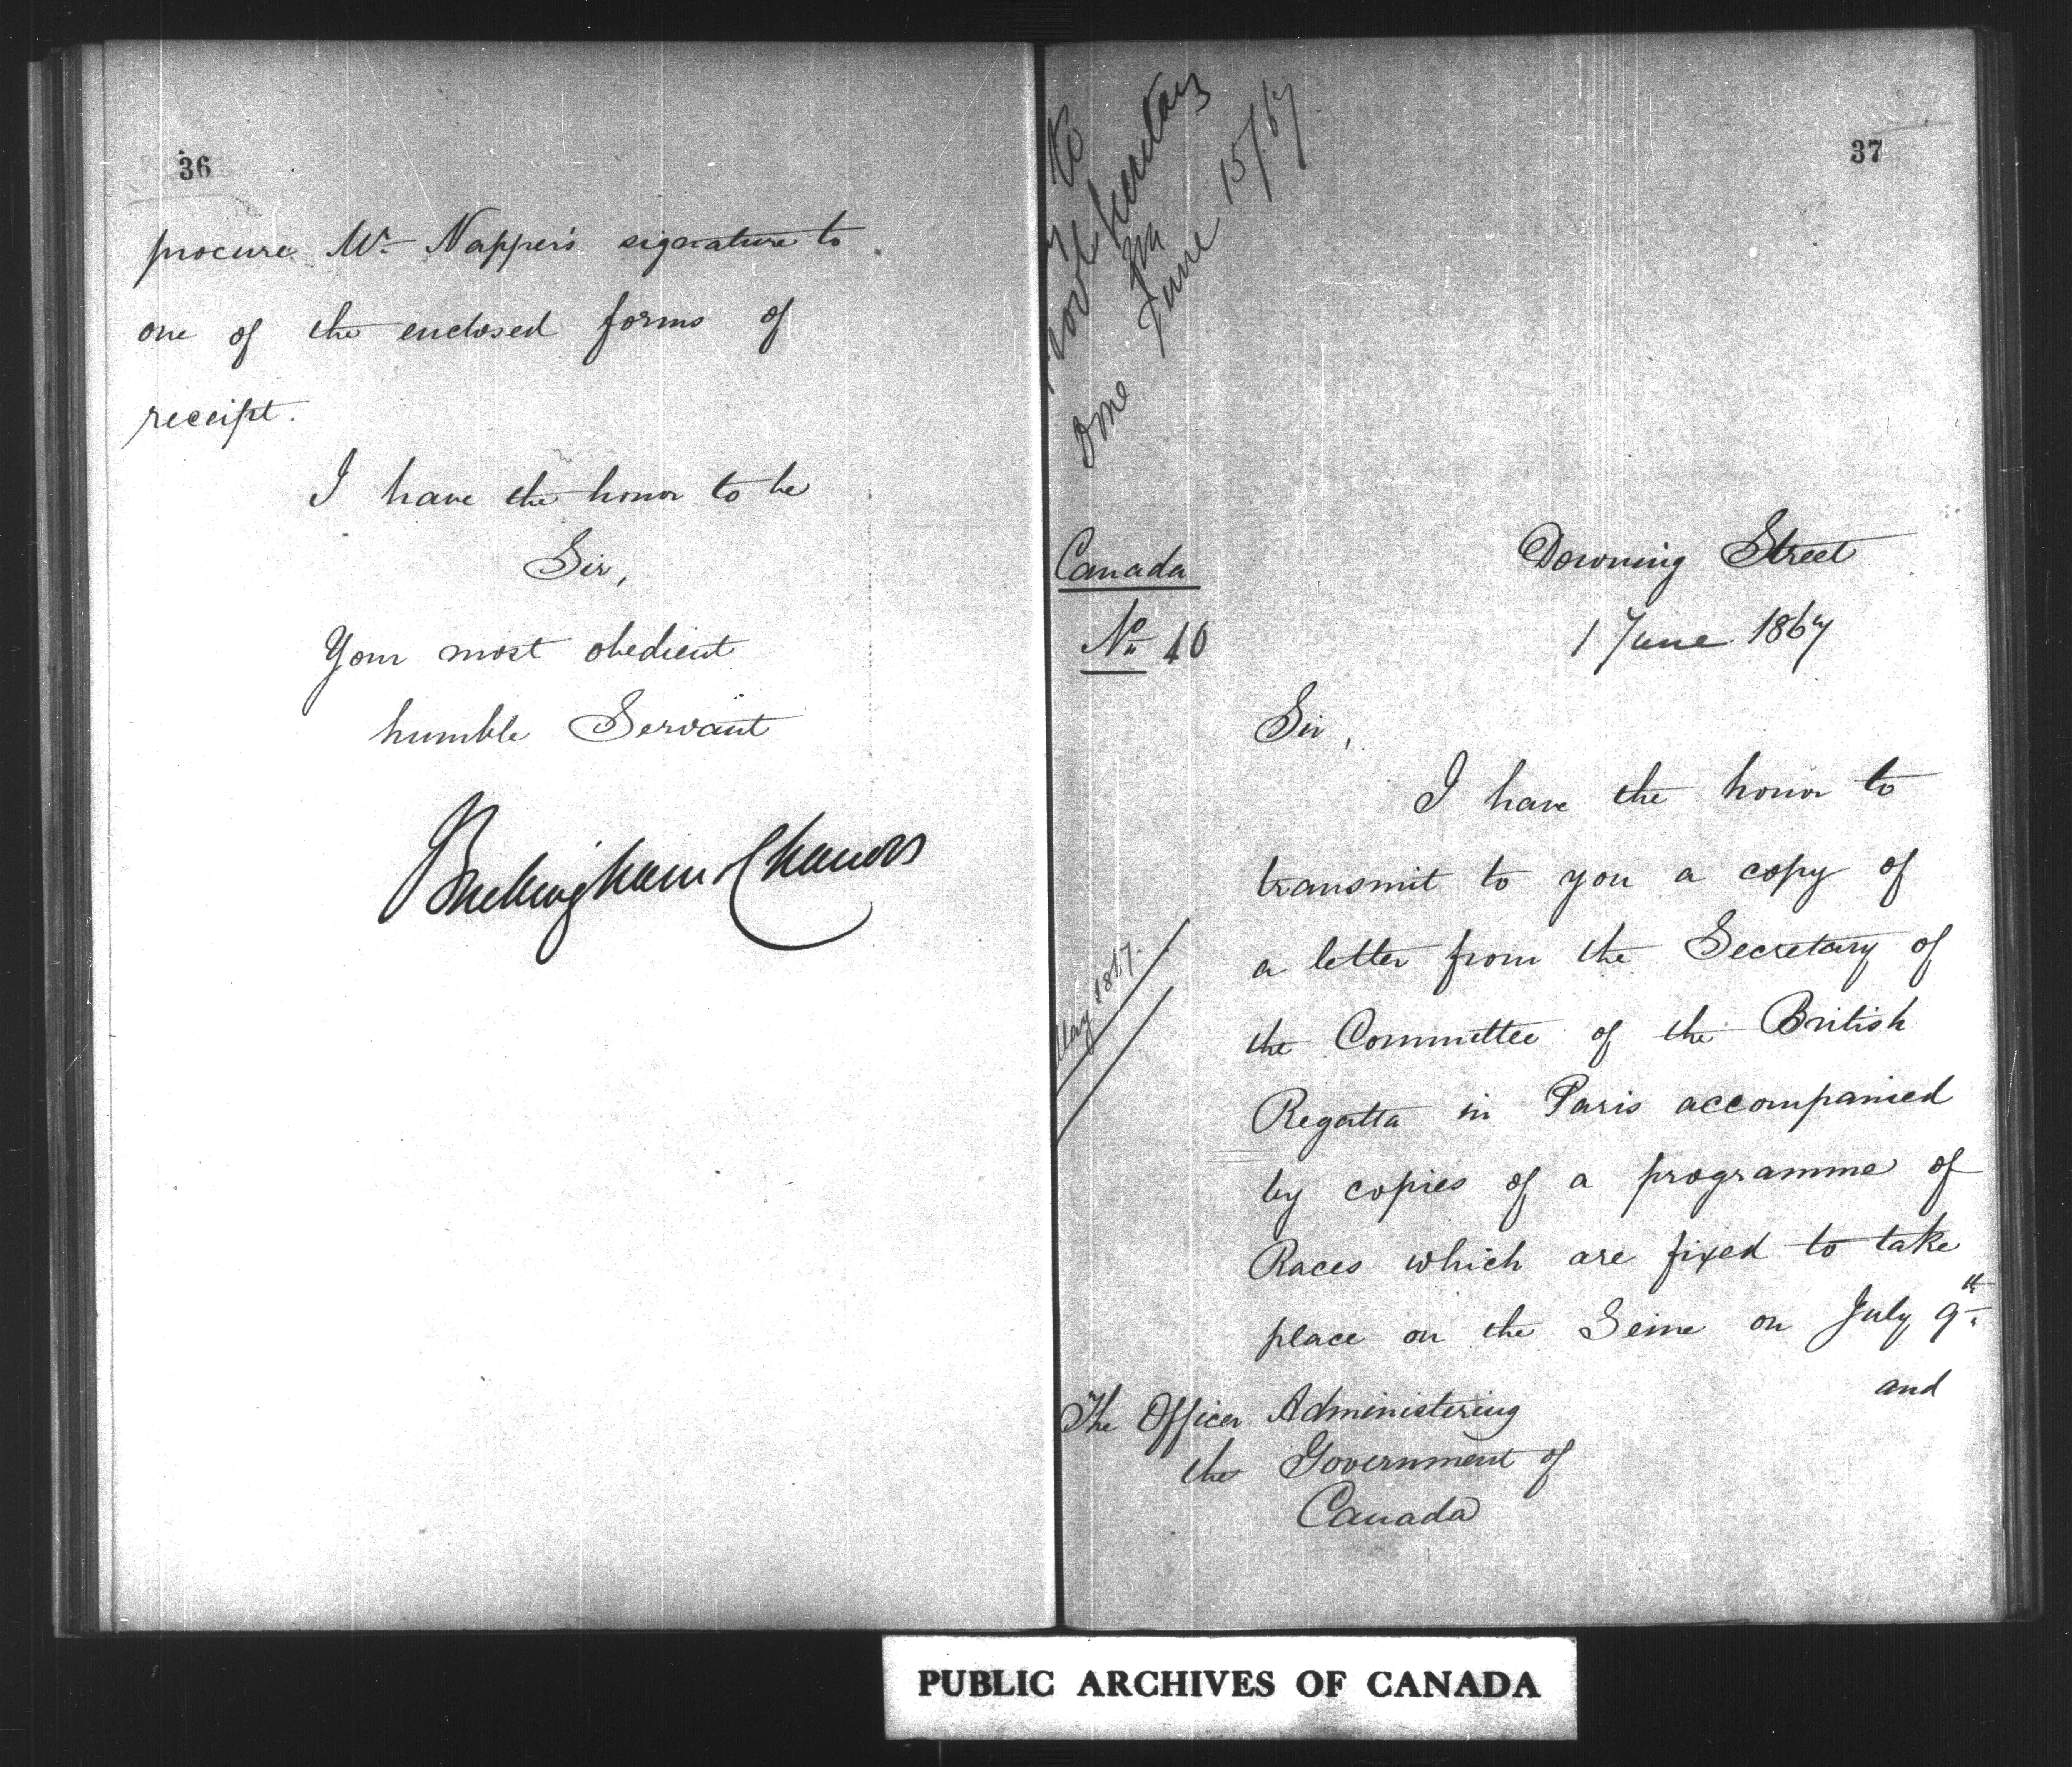 36
procure Mr Napper's signature to
one of the enclosed forms of
receipt.
I have the honor to be
Sir,
Your most obedient
humble Servant
Buckingham & Chandos
37
Secretary
June 15/67
Canada
No 40
Downing Street
1 June 1867
Sir,
I have the honor to
transmit to you a copy of
a letter from the Secretary of
the Committee of the British
Regatta in Paris accompanied
by copies of a programme of
Races which are fixed to take
place on the Seine on July 9th
and
May 1867.
The Officer Administering
the Government of
Canada
PUBLIC ARCHIVES OF CANADA